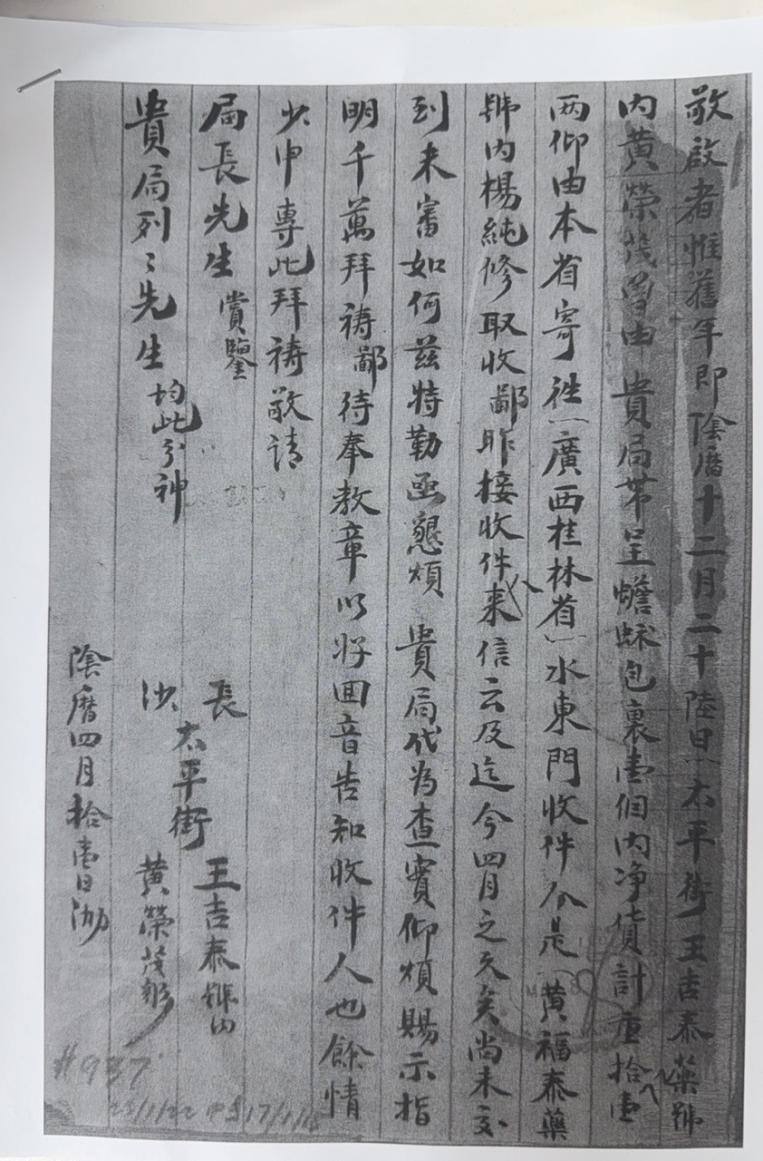 敬啟者惟舊年即陰曆十二月二十陸日太平街王吉泰藥號
內黃榮茂曾由 貴局帶呈蟾蜍包裹壹個內净貨計重拾壹
兩仰由本省寄往(廣西桂林省)水東門收件人是(黃福泰藥
號內楊純修取收鄙昨接收件人來信云及迄今四月之久矣尚未交
到未審如何茲特勒函懇煩 貴局代為查實仰煩賜示指
明千萬拜禱鄙待奉教章以好回音告知收件人也餘情
少申專此拜禱敬請
局長先生 賞鑒
貴局列〻先生 均此分神
長
沙 太平街 王吉泰號內
黃榮茂
陰曆四月拾壹日泐
#937
23/1/22 17/1/